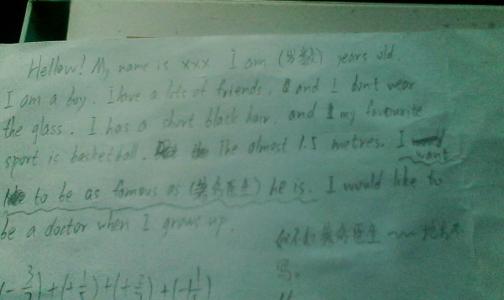 Hellow! My name is xxx I am (岁数) years old.
I am a boy. I have a lots of friends. and I don't wear
the glass. I has a short black hair, and my favourite
sport is basketball. The almost 1.5 metres. I want
to be as famous as (医生) he is. I would like to
be a doctor when I grows up.
医生
写。